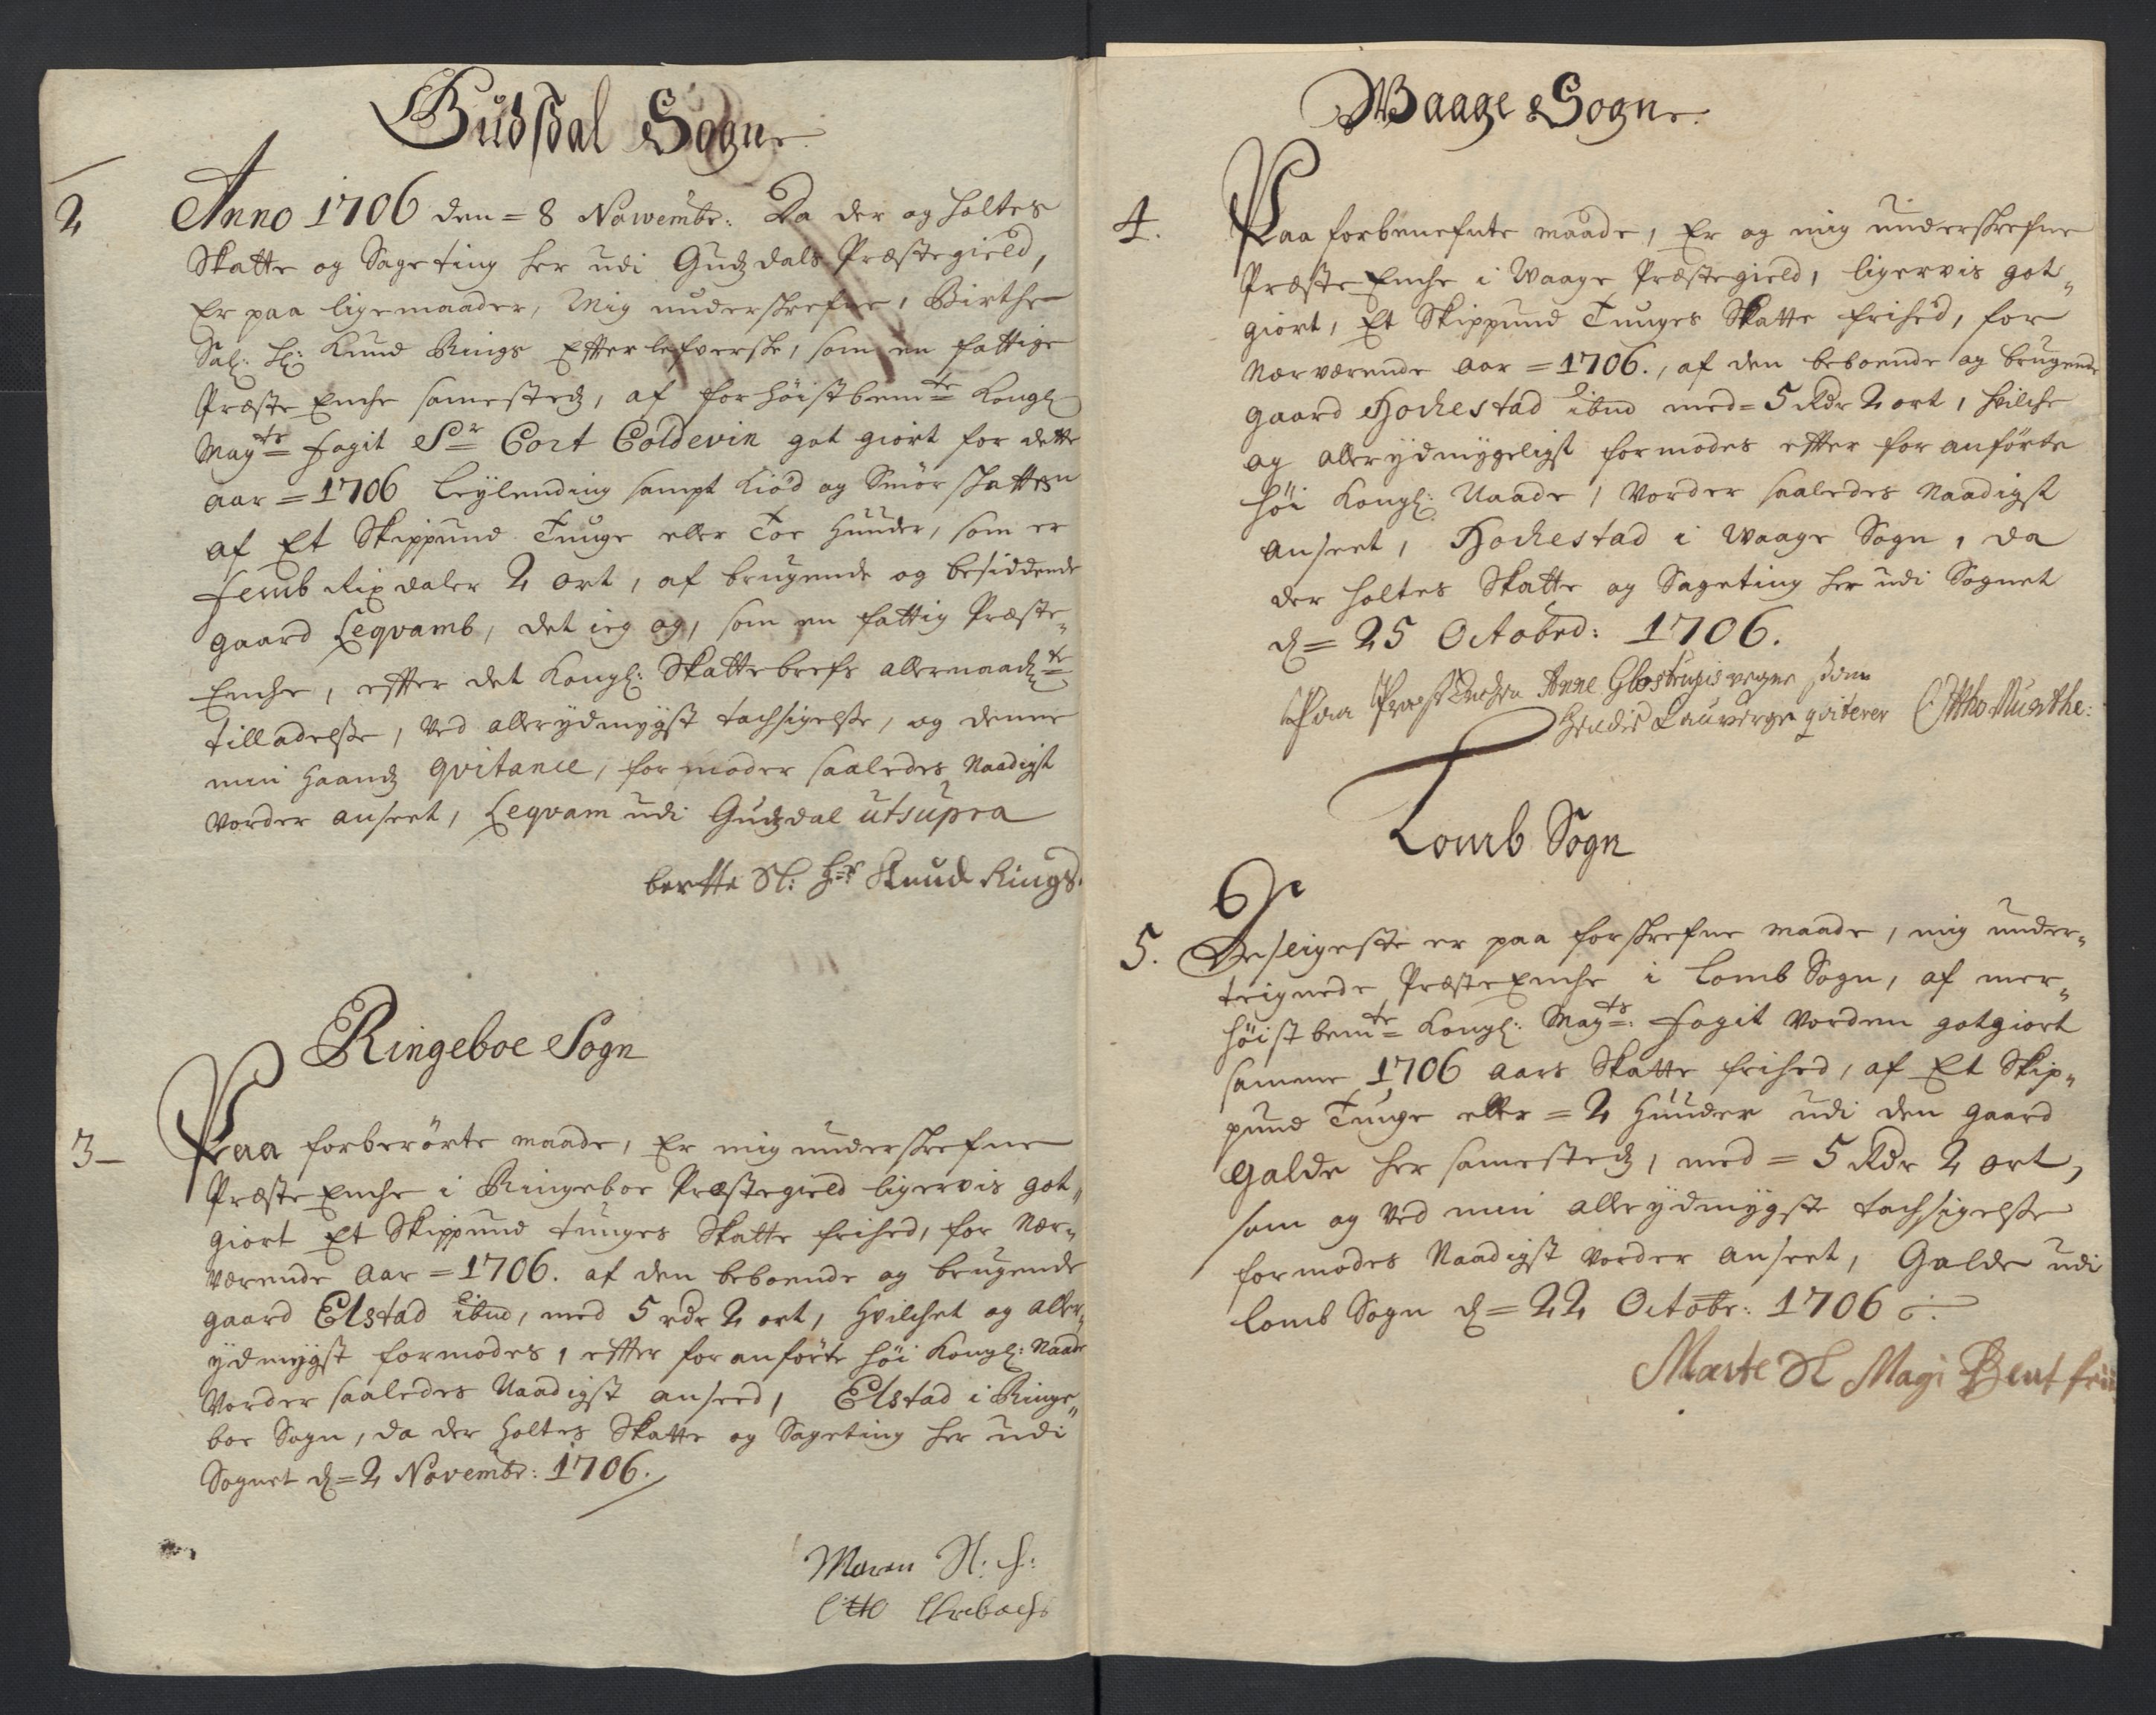 Gudsdal Sogne
2 Anno 1706 den = 8 Novembr: Da der og holtes
Skatte og Sageting her udi Gudzdals Præstegield,
Er paa ligemaader, Mig underskrefne, Birthe
Sal: Hr: Knud Rings Efterlefverske, som en fattige
Præste Enche samestedz, af forhöistbemte Kongl
Maytts fogit Sr Cort Coldevin got giört for dette
aar = 1706 Leylending sampt Kiöd og Smör skatten
af Et Skippund Tunge eller Toe Hunder, som er
femb Rixdaler 2 ort, af brugende og besiddende
gaard Leqvamb, det ieg og, som en fattig Præste„
Enche, efter det Kongl: Skattebrefs allernaadte
tilladelsse, Ved allerydmygst tachsigelsse, og denne
min Haandz qvitance, formoder saaledes Naadigst
Vorder anseet, Leqvam udi Gudzdal utsupra
bertte Sl: Hr: Knud Rings
Ringeboe Sogn
3 Paa forberörte maade, Er mig underskrefne
Præste Enche i Ringeboe Præstegield ligervis got„
giort Et Skippund tunges Skatte frihed, for Nær„
Værende Aar = 1706. af den beboende og brugende
gaard Elstad ibnd, med 5 rdr 2 ort, Hvilchet og aller„
ydmygst formodes, efter foranförte höi Kongl: Naade
Vorder saaledes Naadigst anseed, Elstad i Ringe„
boe Sogn, da der Holtes Skatte og Sageting her udi
Sognet d = 2 Novembr: 1706.
Maren Sl: H:
Otto
Waage Sogne.
4. Paa forbenefnte maade, Er og mig underskrefne
Præste Enche i Waage Præstegield, ligervis got„
giort, Et Skippund Tunges Skatte frihed, for
Nærværende Aar = 1706., af den beboende og brugende
gaard Hochestad ibnd med = 5 Rdr 2 ort, hvilche
og allerydmygeligst formodes efter foranförte
höi Kongl: Naade, Vorder saaledes Naadigst
anseet, Hochestad i Waage Sogn, da
der holtes Skatte og Sageting her udi Sognet
d = 25 Octobrd: 1706.
Paa Præst Enchen Anne Glostrupis vegne som
Hendis Lauverge qviterer Ottho Munthe:
Lomb Sogn
5. Desligeste er paa forskrefne maade, mig under„
teignede Præste Enche i Lomb Sogn, af mer„
höistbemte Kongl: Maytts: fogit Vorden gotgiort
samme 1706 aars Skatte frihed, af Et Skip„
pund Tunge eller = 2 Hunder udi den gaard
Galde her samestedz, med = 5 Rdr 2 ort,
som og Ved min allerydmygste tachsigelsse
formodes Naadigst Vorder anseet, Galde udi
Lomb Sogn d = 22 Octobr: 1706
Marte Sl Magi Bent